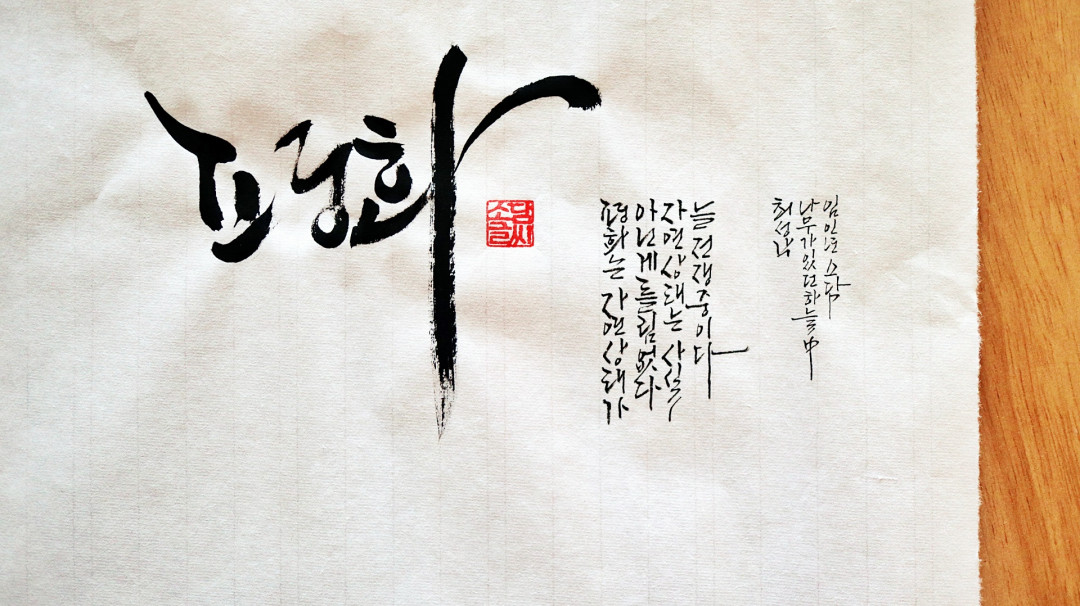 평화
소담
글씨
평화는 자연상태가
아닌게 틀림없다
자연상태는 사실
늘 전쟁중이다
최성각
나무가있던하늘中
임인년 소담